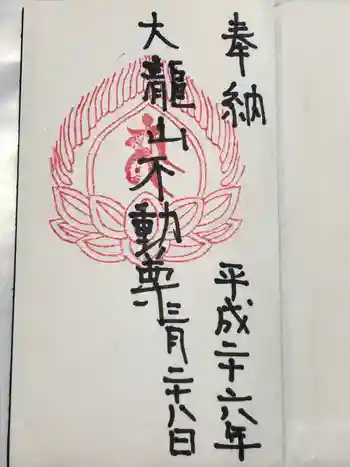 奉納
平成二十六年
大龍山不動尊
三月二十八日